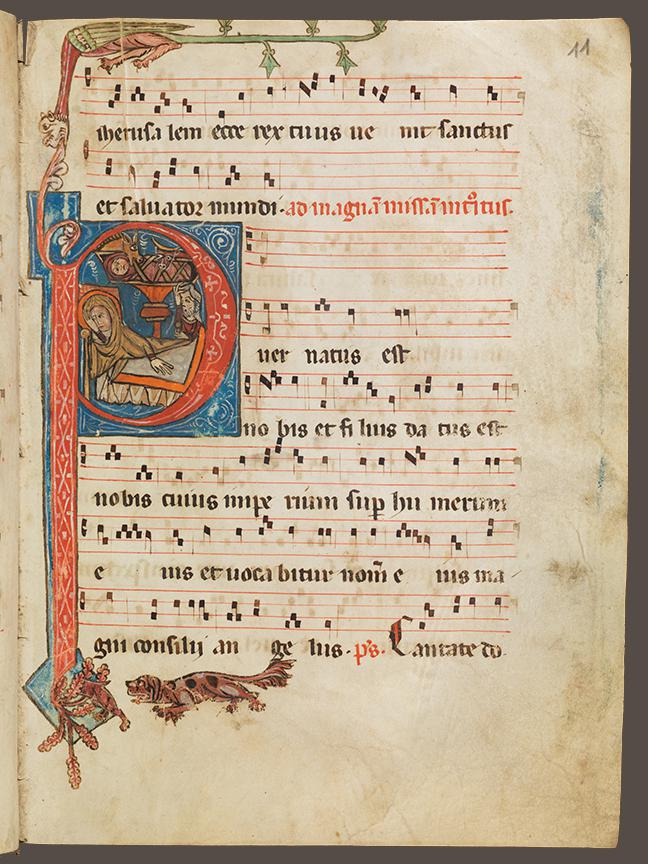 11
iherusa lem ecce rex tuus ue nit sanctus
et saluator mundi. ad magnā missā introitus.
P uer natus est
no bis et fi lius da tus est
nobis cuius impe rium sup hu merum
e ius et uoca bitur nom̄ e ius ma
gni consilij an ge lus. ps. Cantate do